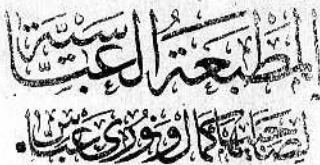 المطبعة العباسية
لصاحبيها كمال ونوري عباس